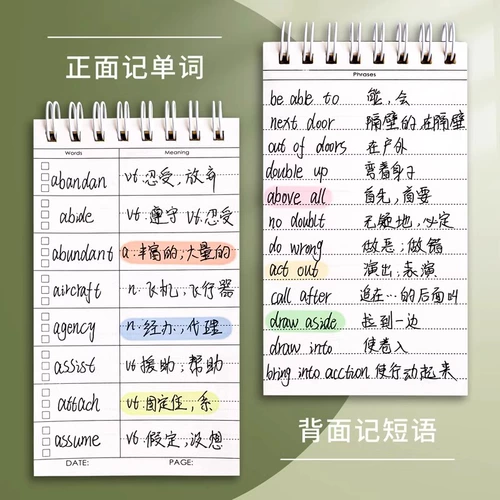 正面记单词
Words Meaning
abandan vt.忍受,放弃
abide vt.遵守 vt.忍受
abundant a.丰富的,大量的
aircraft n.飞机,飞行器
agency n.经办,代理
assist vt 援助,帮助
attach vt.固定住,系
assume vt.假定,设想
DATE: PAGE:
Phrases
be able to 能,会
next door 隔壁的 在隔壁
out of doors 在户外
double up 弯着身子
above all 首先,首要
no doubt 无疑地,必定
do wrong 做恶;做错
act out 演出,表演
call after 追在…的后面叫
draw aside 拉到一边
draw into 使卷入
bring into acction 使行动起来
背面记短语